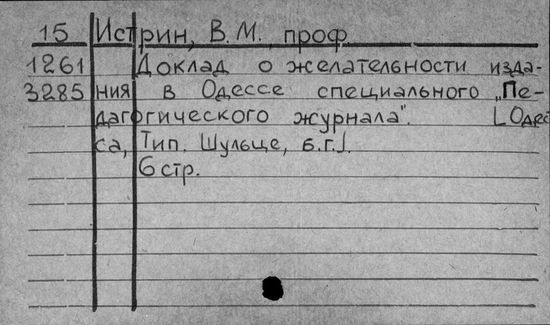 15 Истрин, В.М. проф
1261 Доклад о желательности изда-
3285 ния в Одессе специального „Пе-
дагогического журнала". [Одес
са, Тип. Шульце, б.г.].
6 стр.